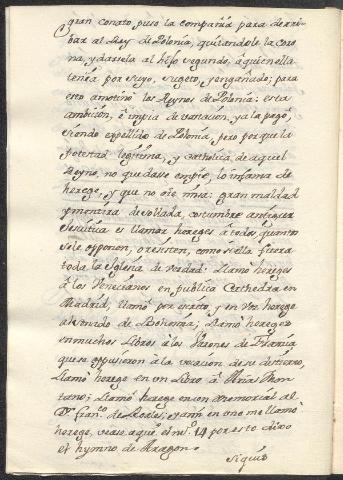 gran conato, puso la compañia para derri-
bar al Rey de Polonia, quitandole la coro
na, y darsela al hijo segundo, à quien ella
tenia por suyo, sugeto, y engañado; para
esto amotinò los Reynos de Polonia: esta
ambicion, è impia de ya la pagò,
siendo expellida de Polonia, pero porque la
potestad legitima, y catholica de aquel
Reyno, no quedasse impie, lo infama de
herege, y que no oie misa: gran maldad
y mentira desollada, costumbre antigua
Jesuitica es llamar hereges à todos quantos
se le opponen, o resisten, como si ella fuera
toda la Iglesia de verdad: Llamò hereges
à los Venecianos en publica Cathedra en
Madrid, llamò por escrito, y en voz herege
al Reyno de Bohemia, llamò hereges
en muchos Libros à los Varones de Francia
que se oppusieron à la vocacion de su destierro,
Llamò herege en un Libro à Arias Mon
tano; Llamò herege en un memorial al
Dr. franco. de Robles; y aun en uno me llamò
herege, vease aqui el no. 14 por esto dixo
el hymno de Aragon.
Siguis